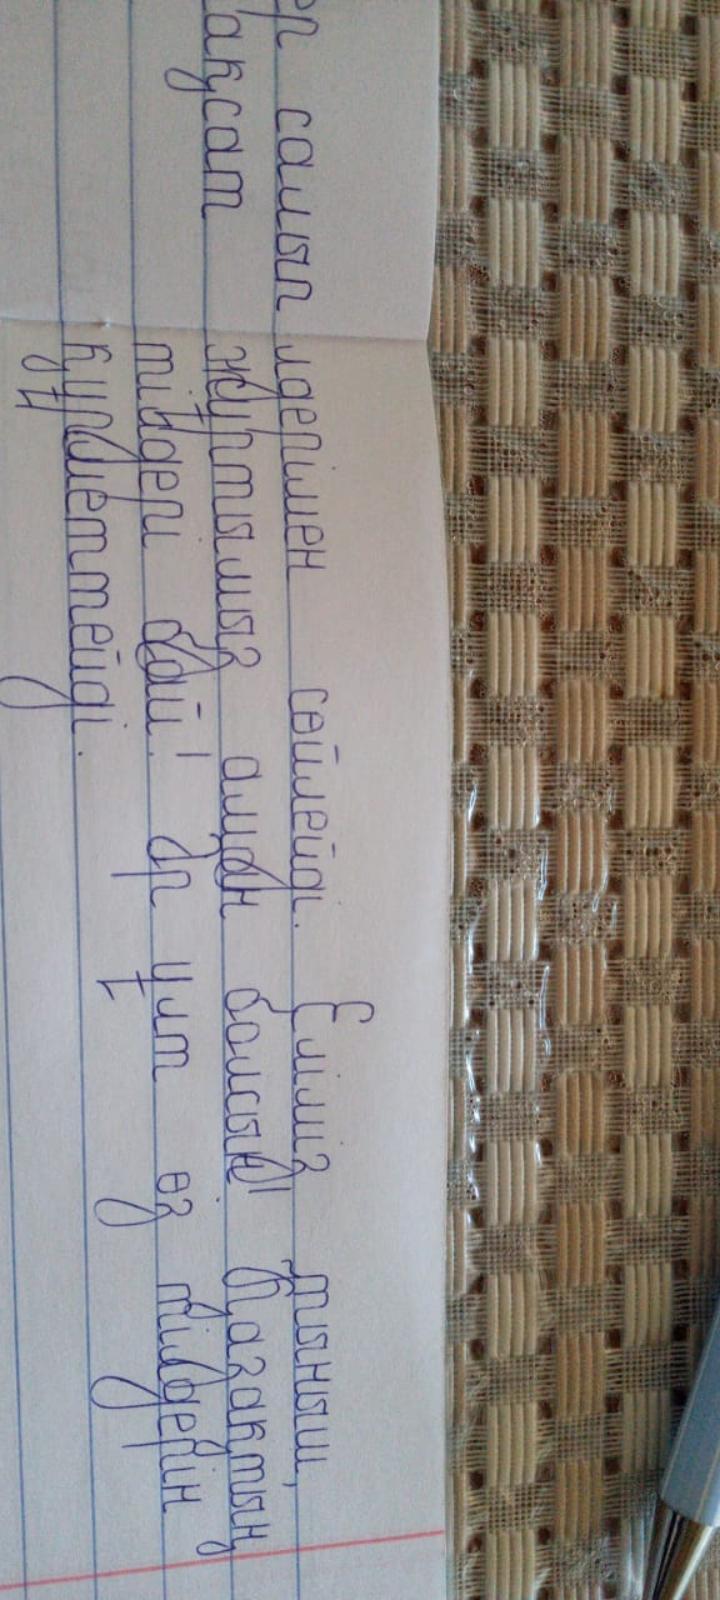 ер салып лдерімен сөйлейді. Еліміз тыныш,
ақсат жұртымыз аман болсын! Қазақтың
тілдері бай! Әр ұлт өз тілдерін
құрметтейді.